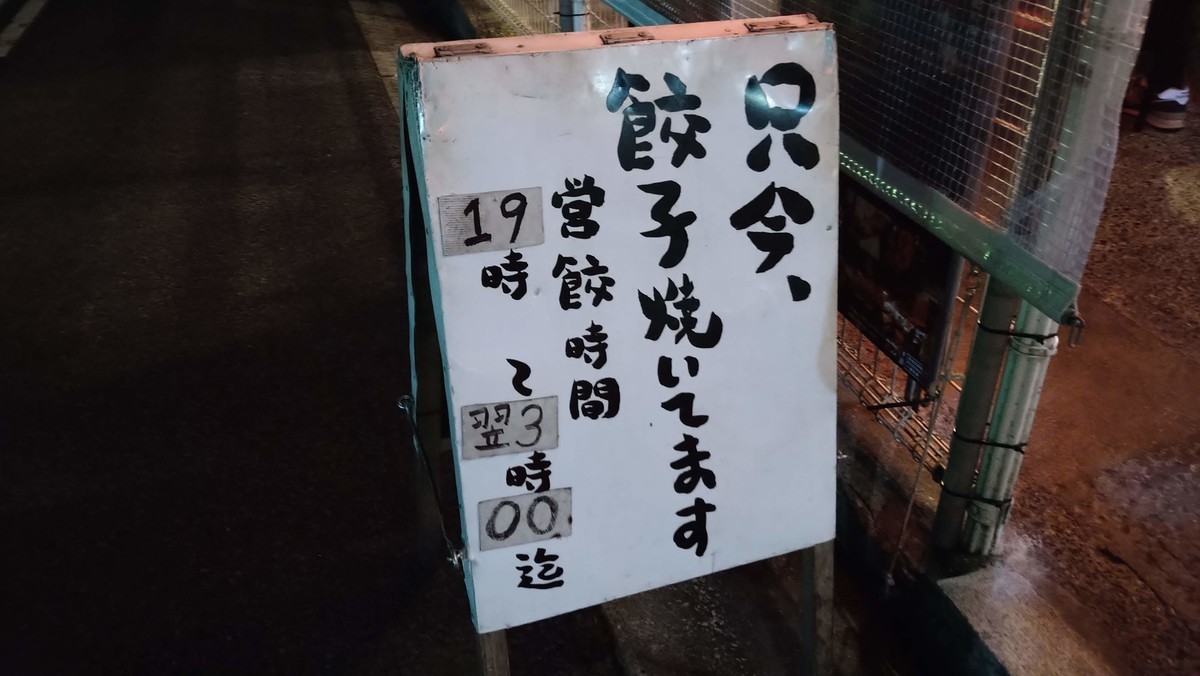 只今、
餃子焼いてます
営餃時間
19時〜翌3時00迄